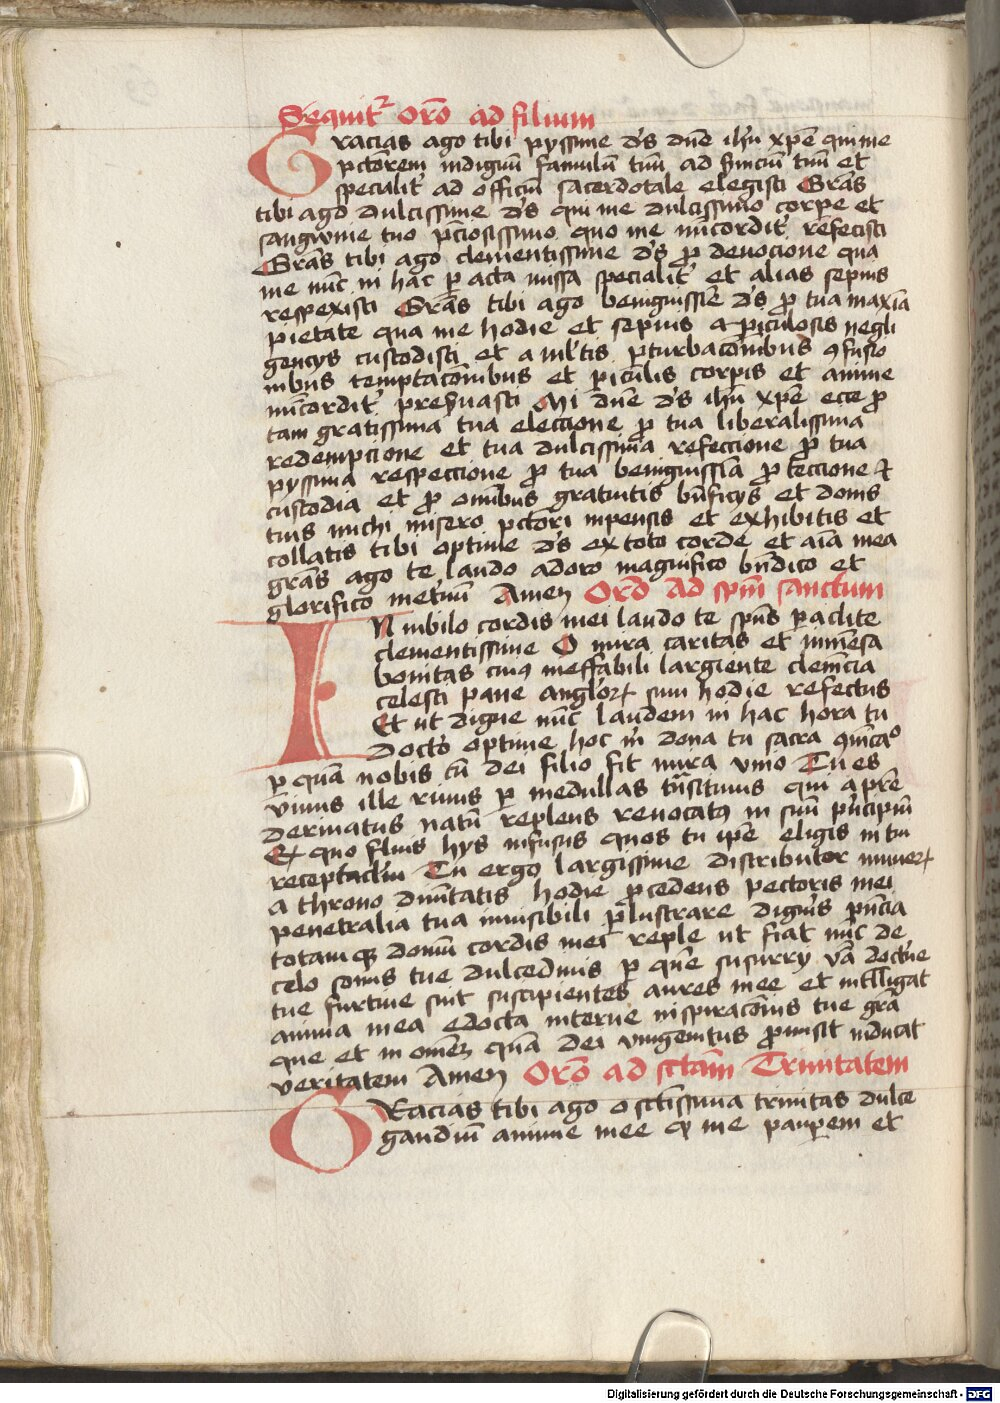 Sequit᷑ Orō ad filium
Gracias ago tibi pyssime d̄s dn̄e ih̄u xp̄e qui me
pctōrem indignū famulū tuū ad s̄uiciū tuū et
specialit᷑ ad officiū sacerdotale elegisti Grās
tibi ago dulcissime d̄s qui me dulcissimo corpe et
sangwine tuo p̄ciosissimo quo me mīcordit᷑ refecisti
Grās tibi ago clementissime d̄s ꝓ deuocione qua
me nūc in hac ꝑ acta missa specialit᷑ et alias sepius
respexisti Grās tibi ago benignissīe d̄s ꝓ tua maxīa
pietate qua me hodie et sepius a piculosis negli
gencys custodisti et a ml̄tis ꝑturbacōnibus ꝯfusio
nibus temptacōnibus et piculis corpis et anime
mīcordit᷑ pres̄uasti Mi dn̄e d̄s ih̄u xp̄e ecce ꝓ
tam gratissima tua eleccione ꝓ tua liberalissima
redempcione et tua dulcissima refeccione ꝓ tua
pyssima respeccione ꝓ tua benignissīa ꝓteccione et
custodia et ꝓ om̄ibus gratuitis bn̄ficys et donis
tuis michi misero pctōri inpensis et exhibitis et
collatis tibi optime d̄s ex toto corde et aīa mea
grās ago te laudo adoro magnifico bn̄dico et
glorifico inet̄nū Amen Orō Ad sp̄m sanctum
In iubilo cordis mei laudo te sp̄us ꝑaclite
clementissime O mira caritas et inmēsa
bonitas cuiꝰ ineffabili largiente clemēcia
celesti pane angloꝝ sum hodie refectus
Et ut digne nūc laudem in hac hora tu
Docto optime hoc m̄ dona tu sacra ꝯmīcao
ꝑ quā nobis cū dei filio fit mira vnio Tu es
viuus ille riuus ꝑ medullas trāsitiuus qui a p̄re
deriuatus natū replens reuocatꝰ in suū p̄ncipiū
Ex quo fluis hys infusus quos tu ip̄e eligis in tui
receptaclm Tu ergo largissime distributor muneꝝ
a throno diuītatis hodie ꝓcedens pectoris mei
penetralia tua inuisibili ꝑlustrare digneris p̄ncia
totamqꝫ domū cordis mei reple ut fiat nūc de
celo sonus tue dulcedinis ꝑ quē susurry vā doct̄ne
tue furtiue sint suscipientes aures mee et intelligat
anima mea edocta interne inspiracōnis tue grā
que et in om̄eꝫ quā dei vnigenitus ꝓmisit inducat
veritatem Amen Orō ad sctām Trinitatem
GRacias tibi ago o sctīssima trinitas dulce
gaudiū anime mee qꝫ me paupem et
Digitalisierung gefördert durch die Deutsche Forschungsgemeinschaft - DFG